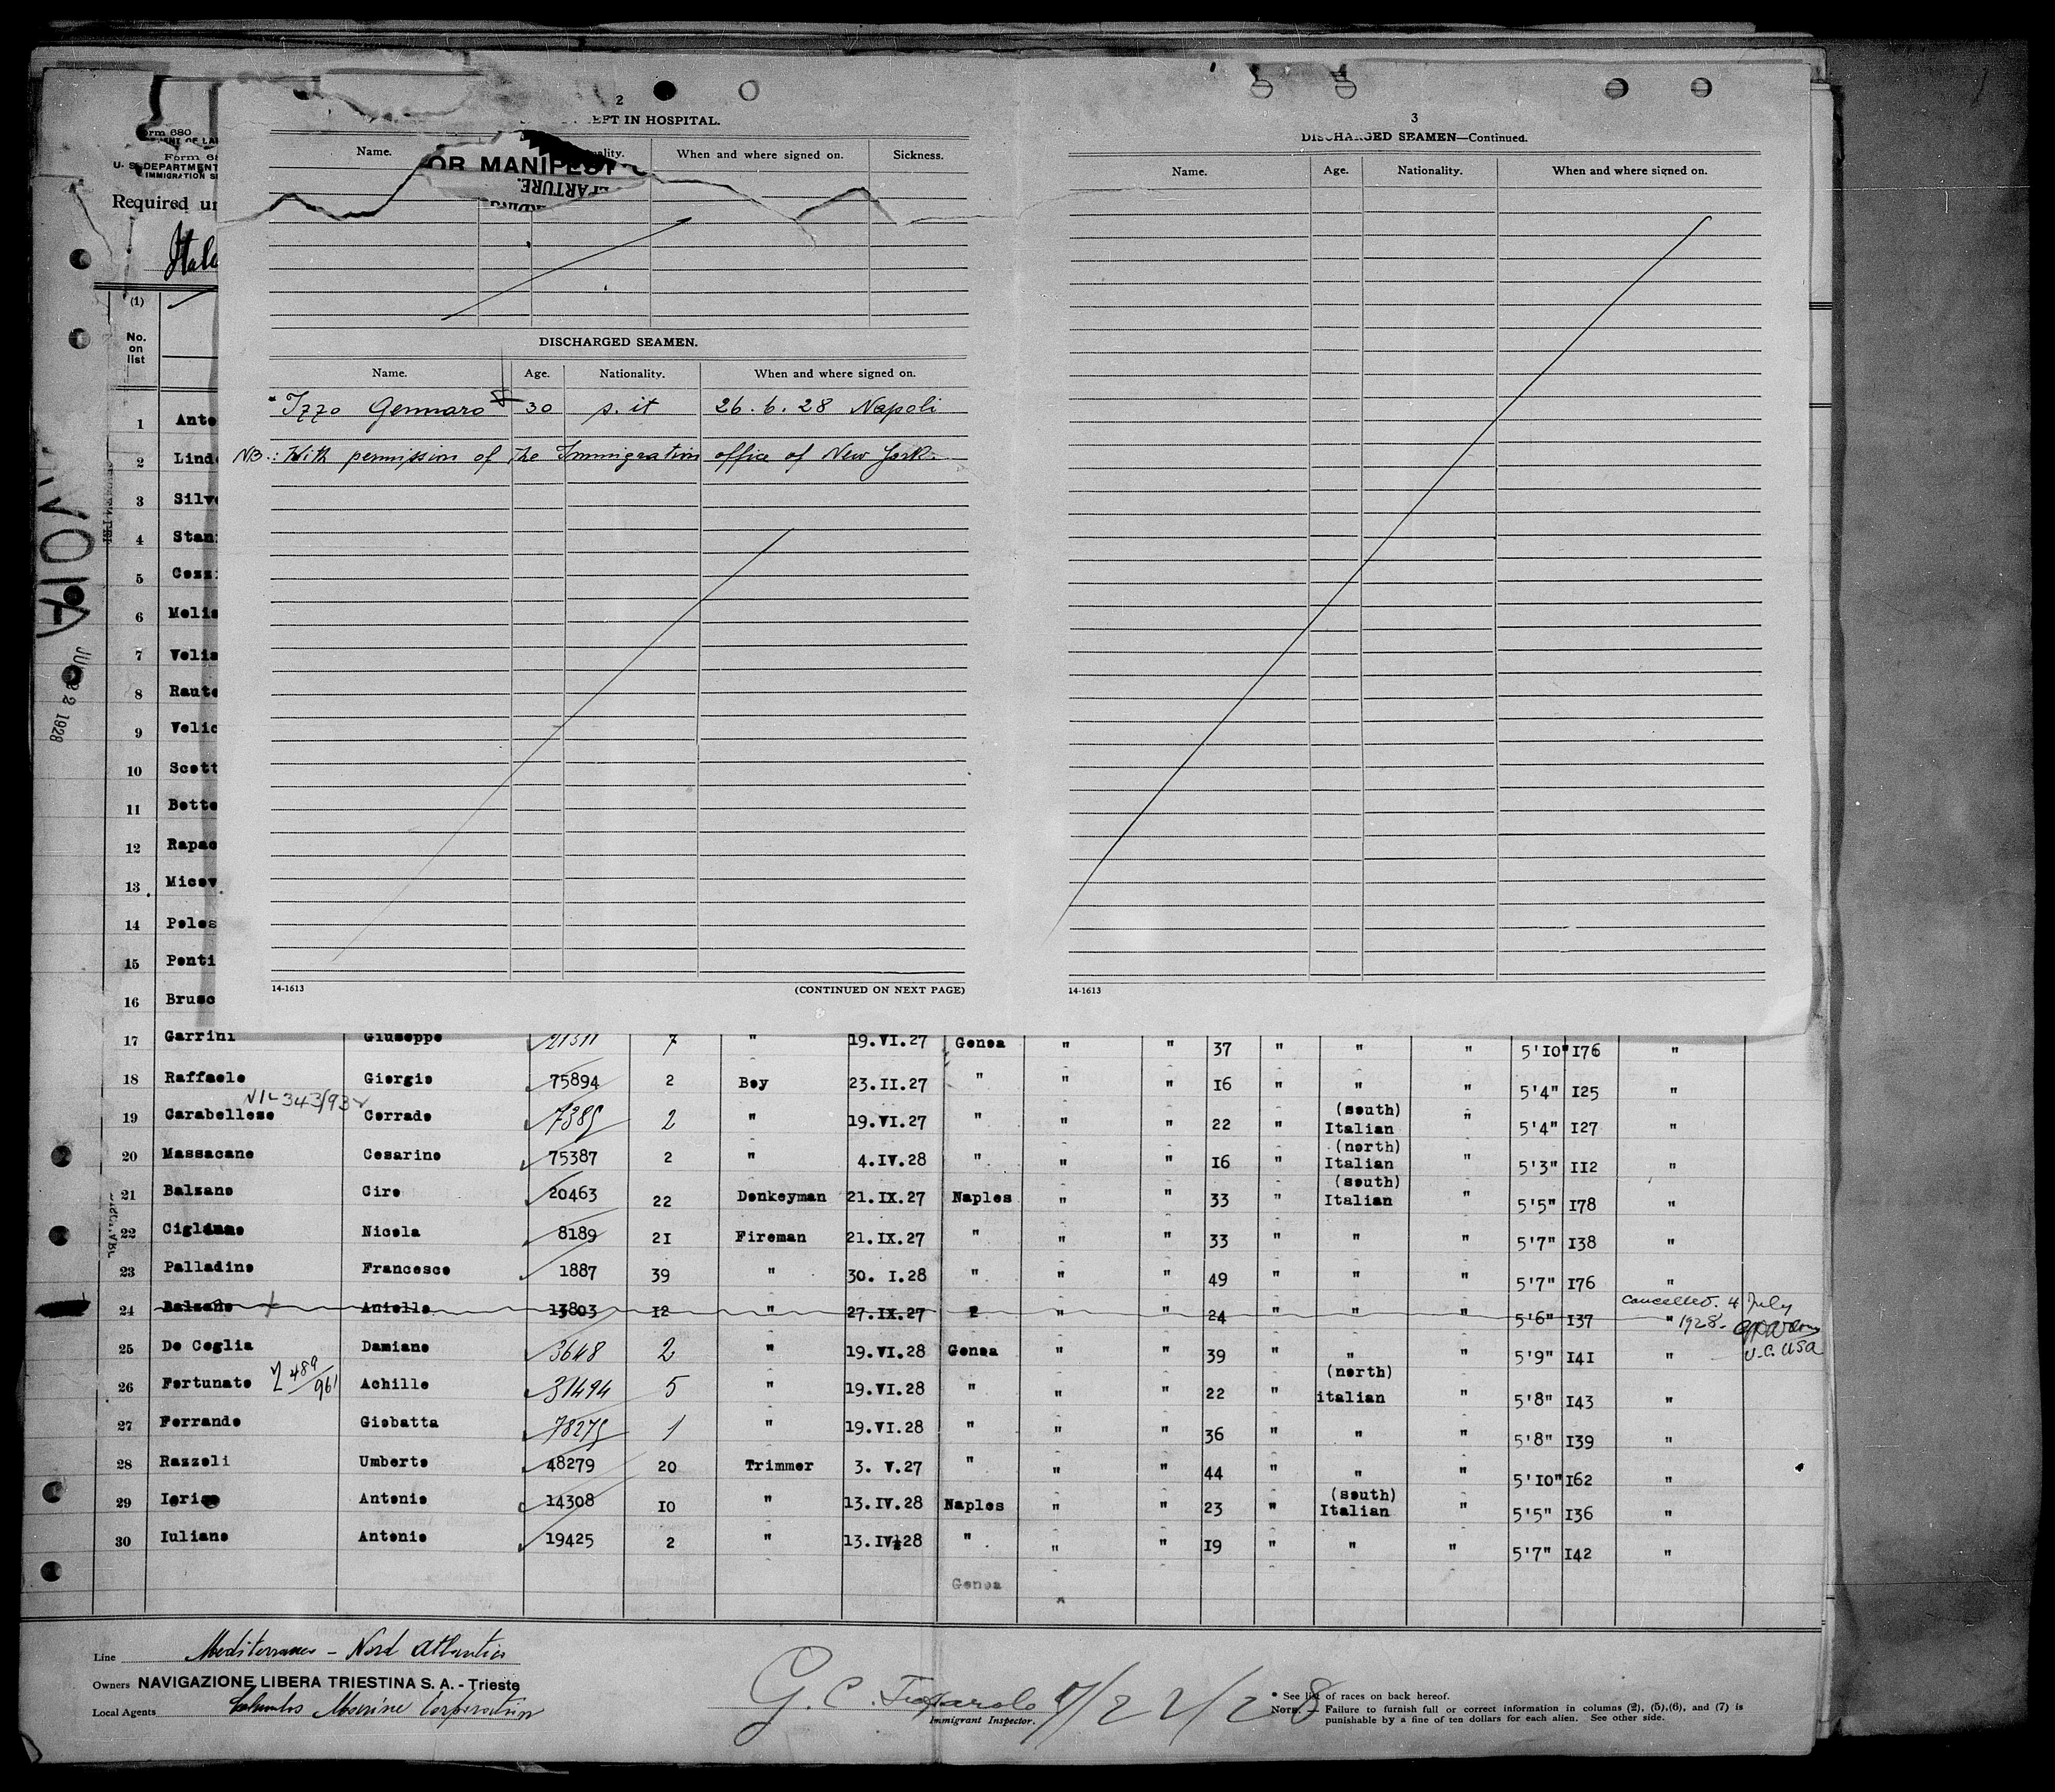 2
LEFT IN HOSPITAL.
Name. Nationality. When and where signed on. Sickness.
OR MANIFEST
DISCHARGED SEAMEN.
Name. Age. Nationality. When and where signed on.
Izzo Gennaro 30 s. it 26. 6. 28 Napoli
NB.: With permission of the Immigration office of New York.
14-1613 (CONTINUED ON NEXT PAGE)
3
DISCHARGED SEAMEN—Continued.
Name. Age. Nationality. When and where signed on.
14-1613
Form 680
U. S. DEPARTMENT
IMMIGRATION
Required un
(1)
No. on list
1 Ante
2 Linde
3 Silve
4 Stan
5 Cozz
6 Melis
7 Velia
8 Raute
9 Velic
10 Scott
11 Bette
12 Rapac
13 Micev
14 Peles
15 Penti
16 Brusc
17 Garrini Giuseppe 21311 7 " 19.VI.27 Genoa " " 37 " " " 5'10" 176 "
18 Raffaele Giorgio 75894 2 Boy 23.II.27 " " " 16 " " " 5'4" 125 "
19 Carabellese Corrado 7385 2 " 19.VI.27 " " " 22 " (south) Italian " 5'4" 127 "
20 Massacane Cesarino 75387 2 " 4.IV.28 " " " 16 " (north) Italian " 5'3" 112 "
21 Balzano Ciro 20463 22 Donkeyman 21.IX.27 Naples " " 33 " (south) Italian " 5'5" 178 "
22 Cigliano Nicola 8189 21 Fireman 21.IX.27 " " " 33 " " " 5'7" 138 "
23 Palladino Francesco 1887 39 " 30. I.28 " " " 49 " " " 5'7" 176 "
24 Balzano Aniello 13803 12 " 27.IX.27 " " " 24 " " " 5'6" 137 " Cancelled. 4 July 1928.
25 De Ceglia Damiano 3648 2 " 19.VI.28 Genoa " " 39 " " " 5'9" 141 " U.S. USA
26 Fortunato 489/961 Achille 31494 5 " 19.VI.28 " " " 22 " (north) italian " 5'8" 143 "
27 Ferrando Giobatta 78275 1 " 19.VI.28 " " " 36 " " " 5'8" 139 "
28 Razzoli Umberto 48279 20 Trimmer 3. V.27 " " " 44 " " " 5'10" 162 "
29 Iorio Antonio 14308 10 " 13.IV.28 Naples " " 23 " (south) Italian " 5'5" 136 "
30 Iuliano Antonio 19425 2 " 13.IV.28 " " " 19 " " " 5'7" 142 "
Genoa "
Line Mediterraneo - Nord Atlantico
Owners NAVIGAZIONE LIBERA TRIESTINA S. A. - Trieste
Local Agents Columbus Marine Corporation
G. C. 7/22/28
Immigrant Inspector.
* See list of races on back hereof.
NOTE.— Failure to furnish full or correct information in columns (2), (5), (6), and (7) is
punishable by a fine of ten dollars for each alien. See other side.
22 1928